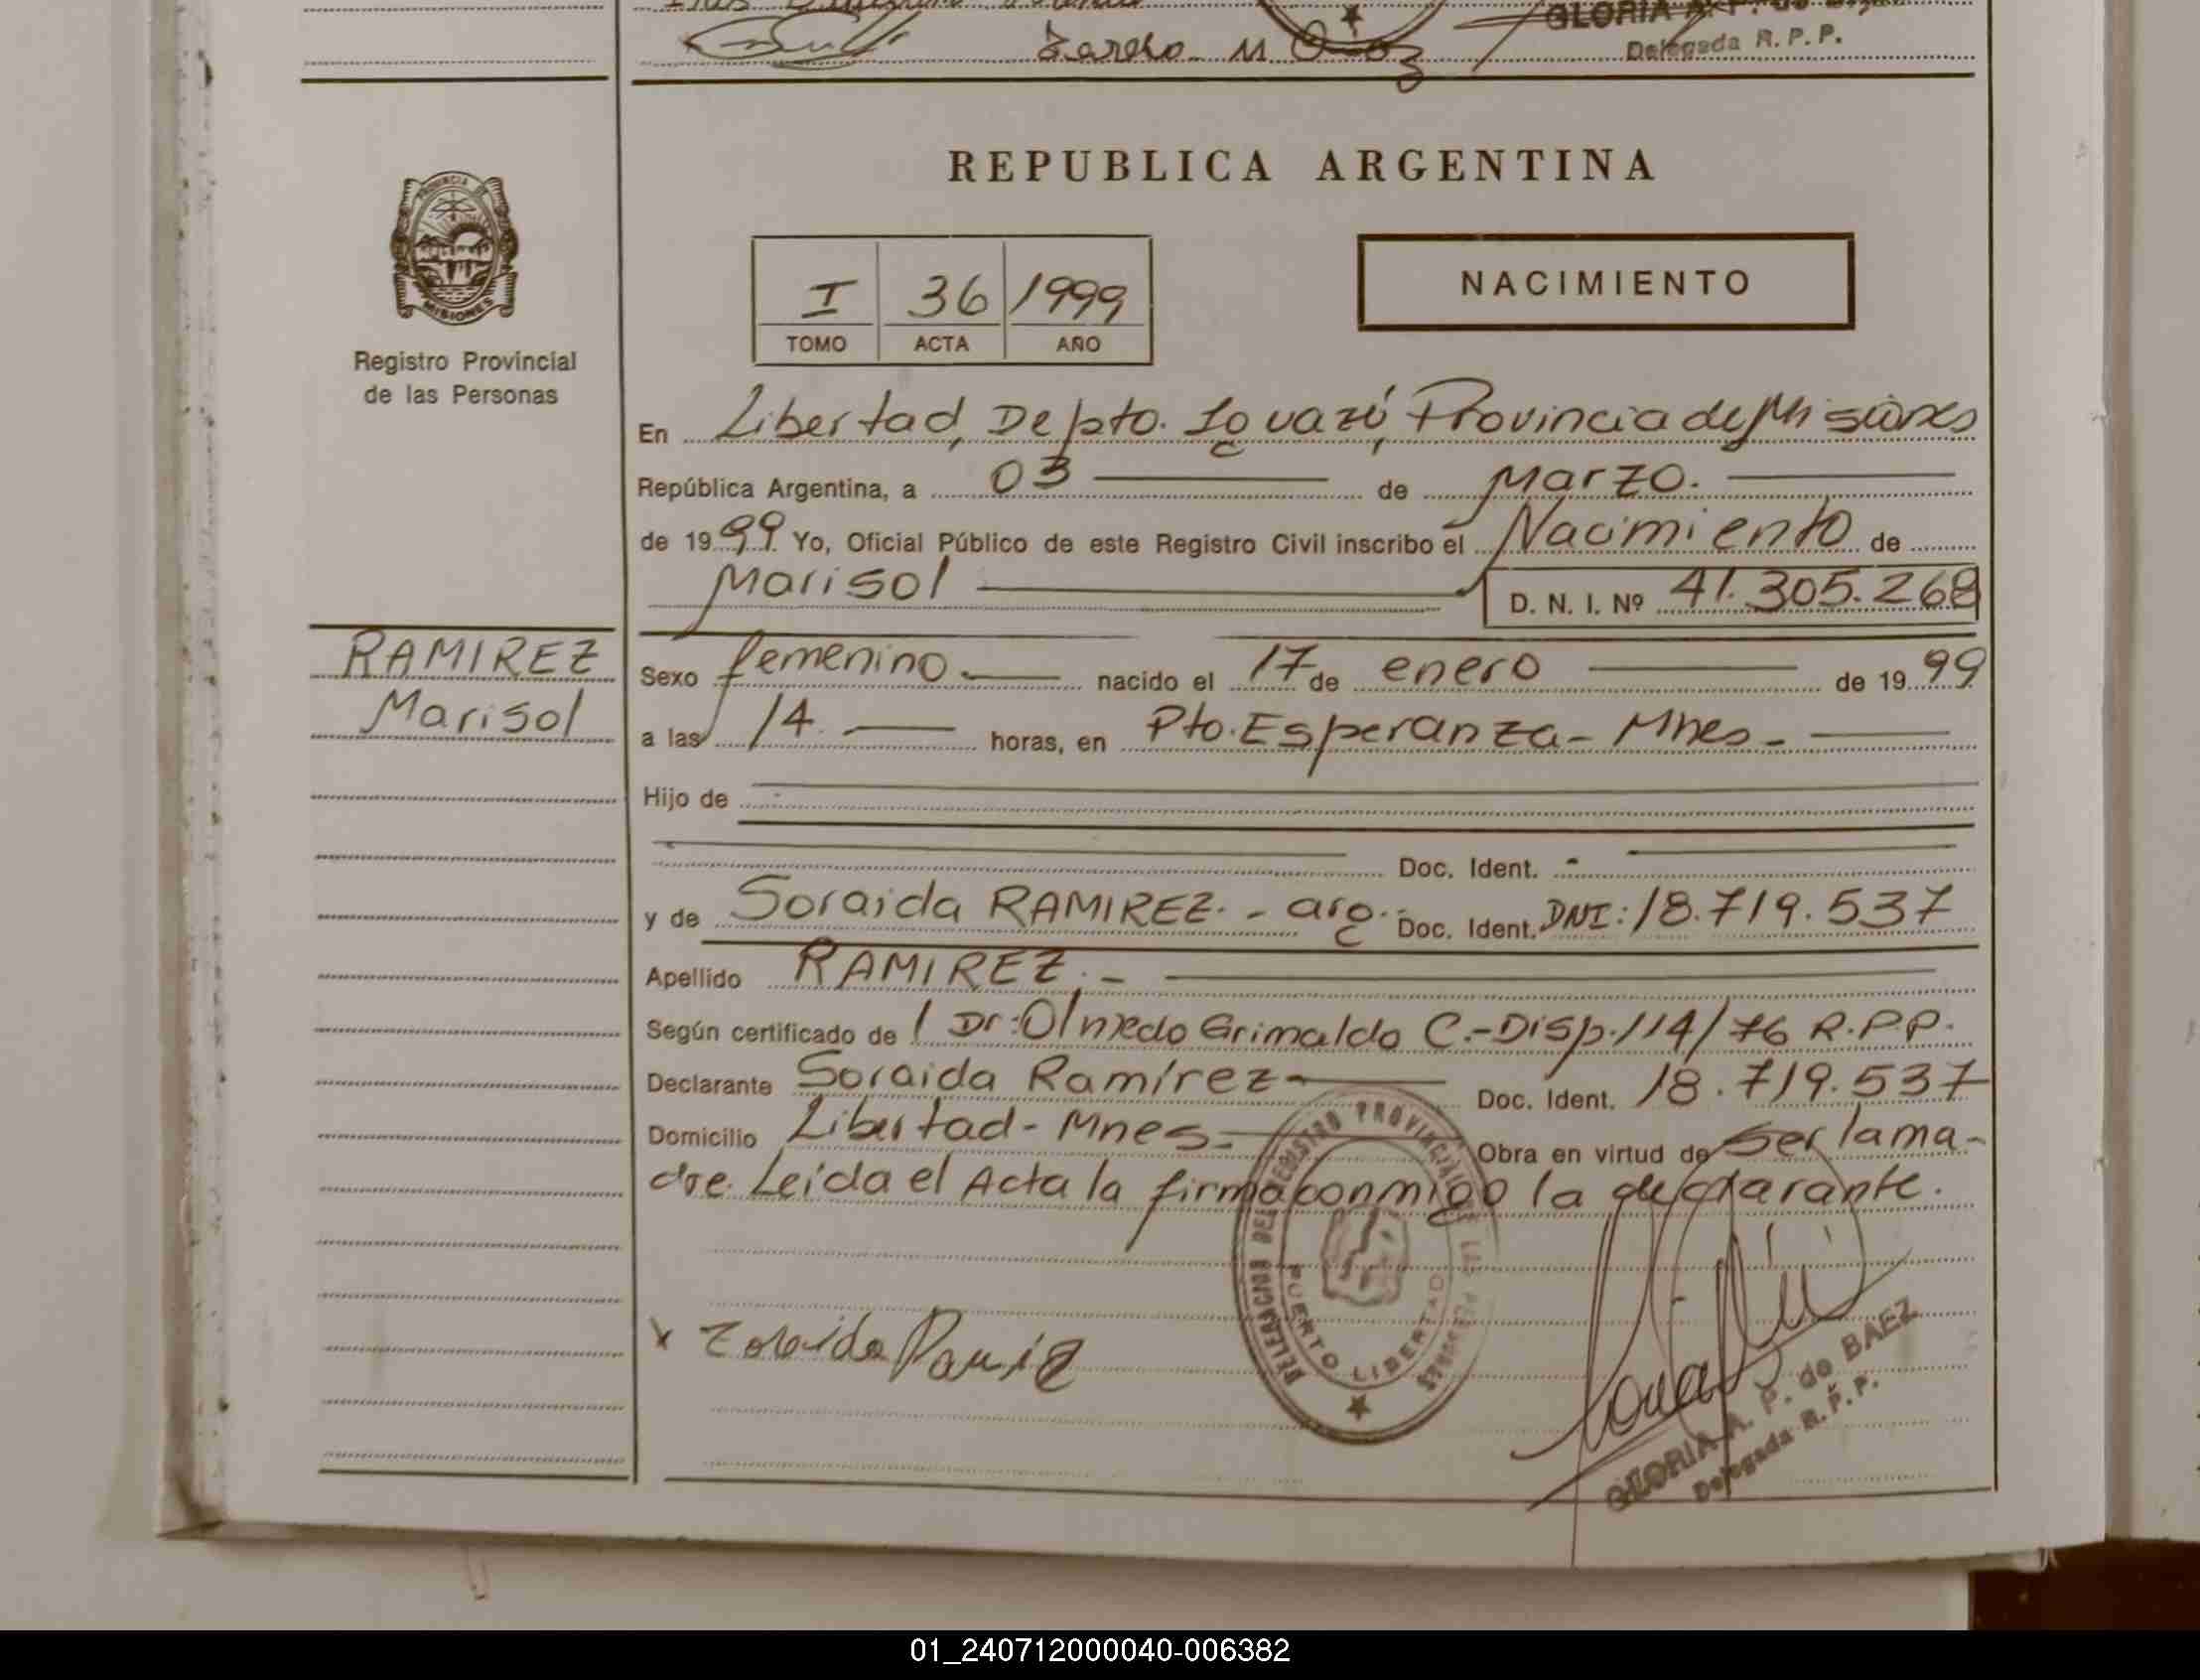 Delegada R. P. P.
PROVINCIA DE
MISIONES
Registro Provincial
de las Personas
RAMIREZ
Marisol
REPUBLICA ARGENTINA
I 36 1999
TOMO ACTA AÑO
NACIMIENTO
En Libertad, Depto. Iguazú, Provincia de Misiones
República Argentina, a 03 de Marzo.
de 1999 Yo, Oficial Público de este Registro Civil inscribo el Nacimiento de
Marisol D. N. I. Nº 41.305.268
Sexo femenino nacido el 17 de enero de 1999
a las 14 horas, en Pto. Esperanza - Mnes -
Hijo de
Doc. Ident. -
y de Soraida RAMIREZ. - arg. Doc. Ident. DNI: 18.719.537
Apellido RAMIREZ. -
Según certificado de Dr: Olmedo Grimaldo C.- Disp. 114/76 R.P.P.
Declarante Soraida Ramírez - Doc. Ident. 18.719.537
Domicilio Libertad - Mnes - Obra en virtud de ser la ma-
dre. Leída el Acta la firma conmigo la declarante.
DELEGACION DEL REGISTRO PROVINCIAL DE LAS PERSONAS
PUERTO LIBERTAD
x Zoraida
GLORIA A. P. de BAEZ
Delegada R. P. P.
01_240712000040-006382